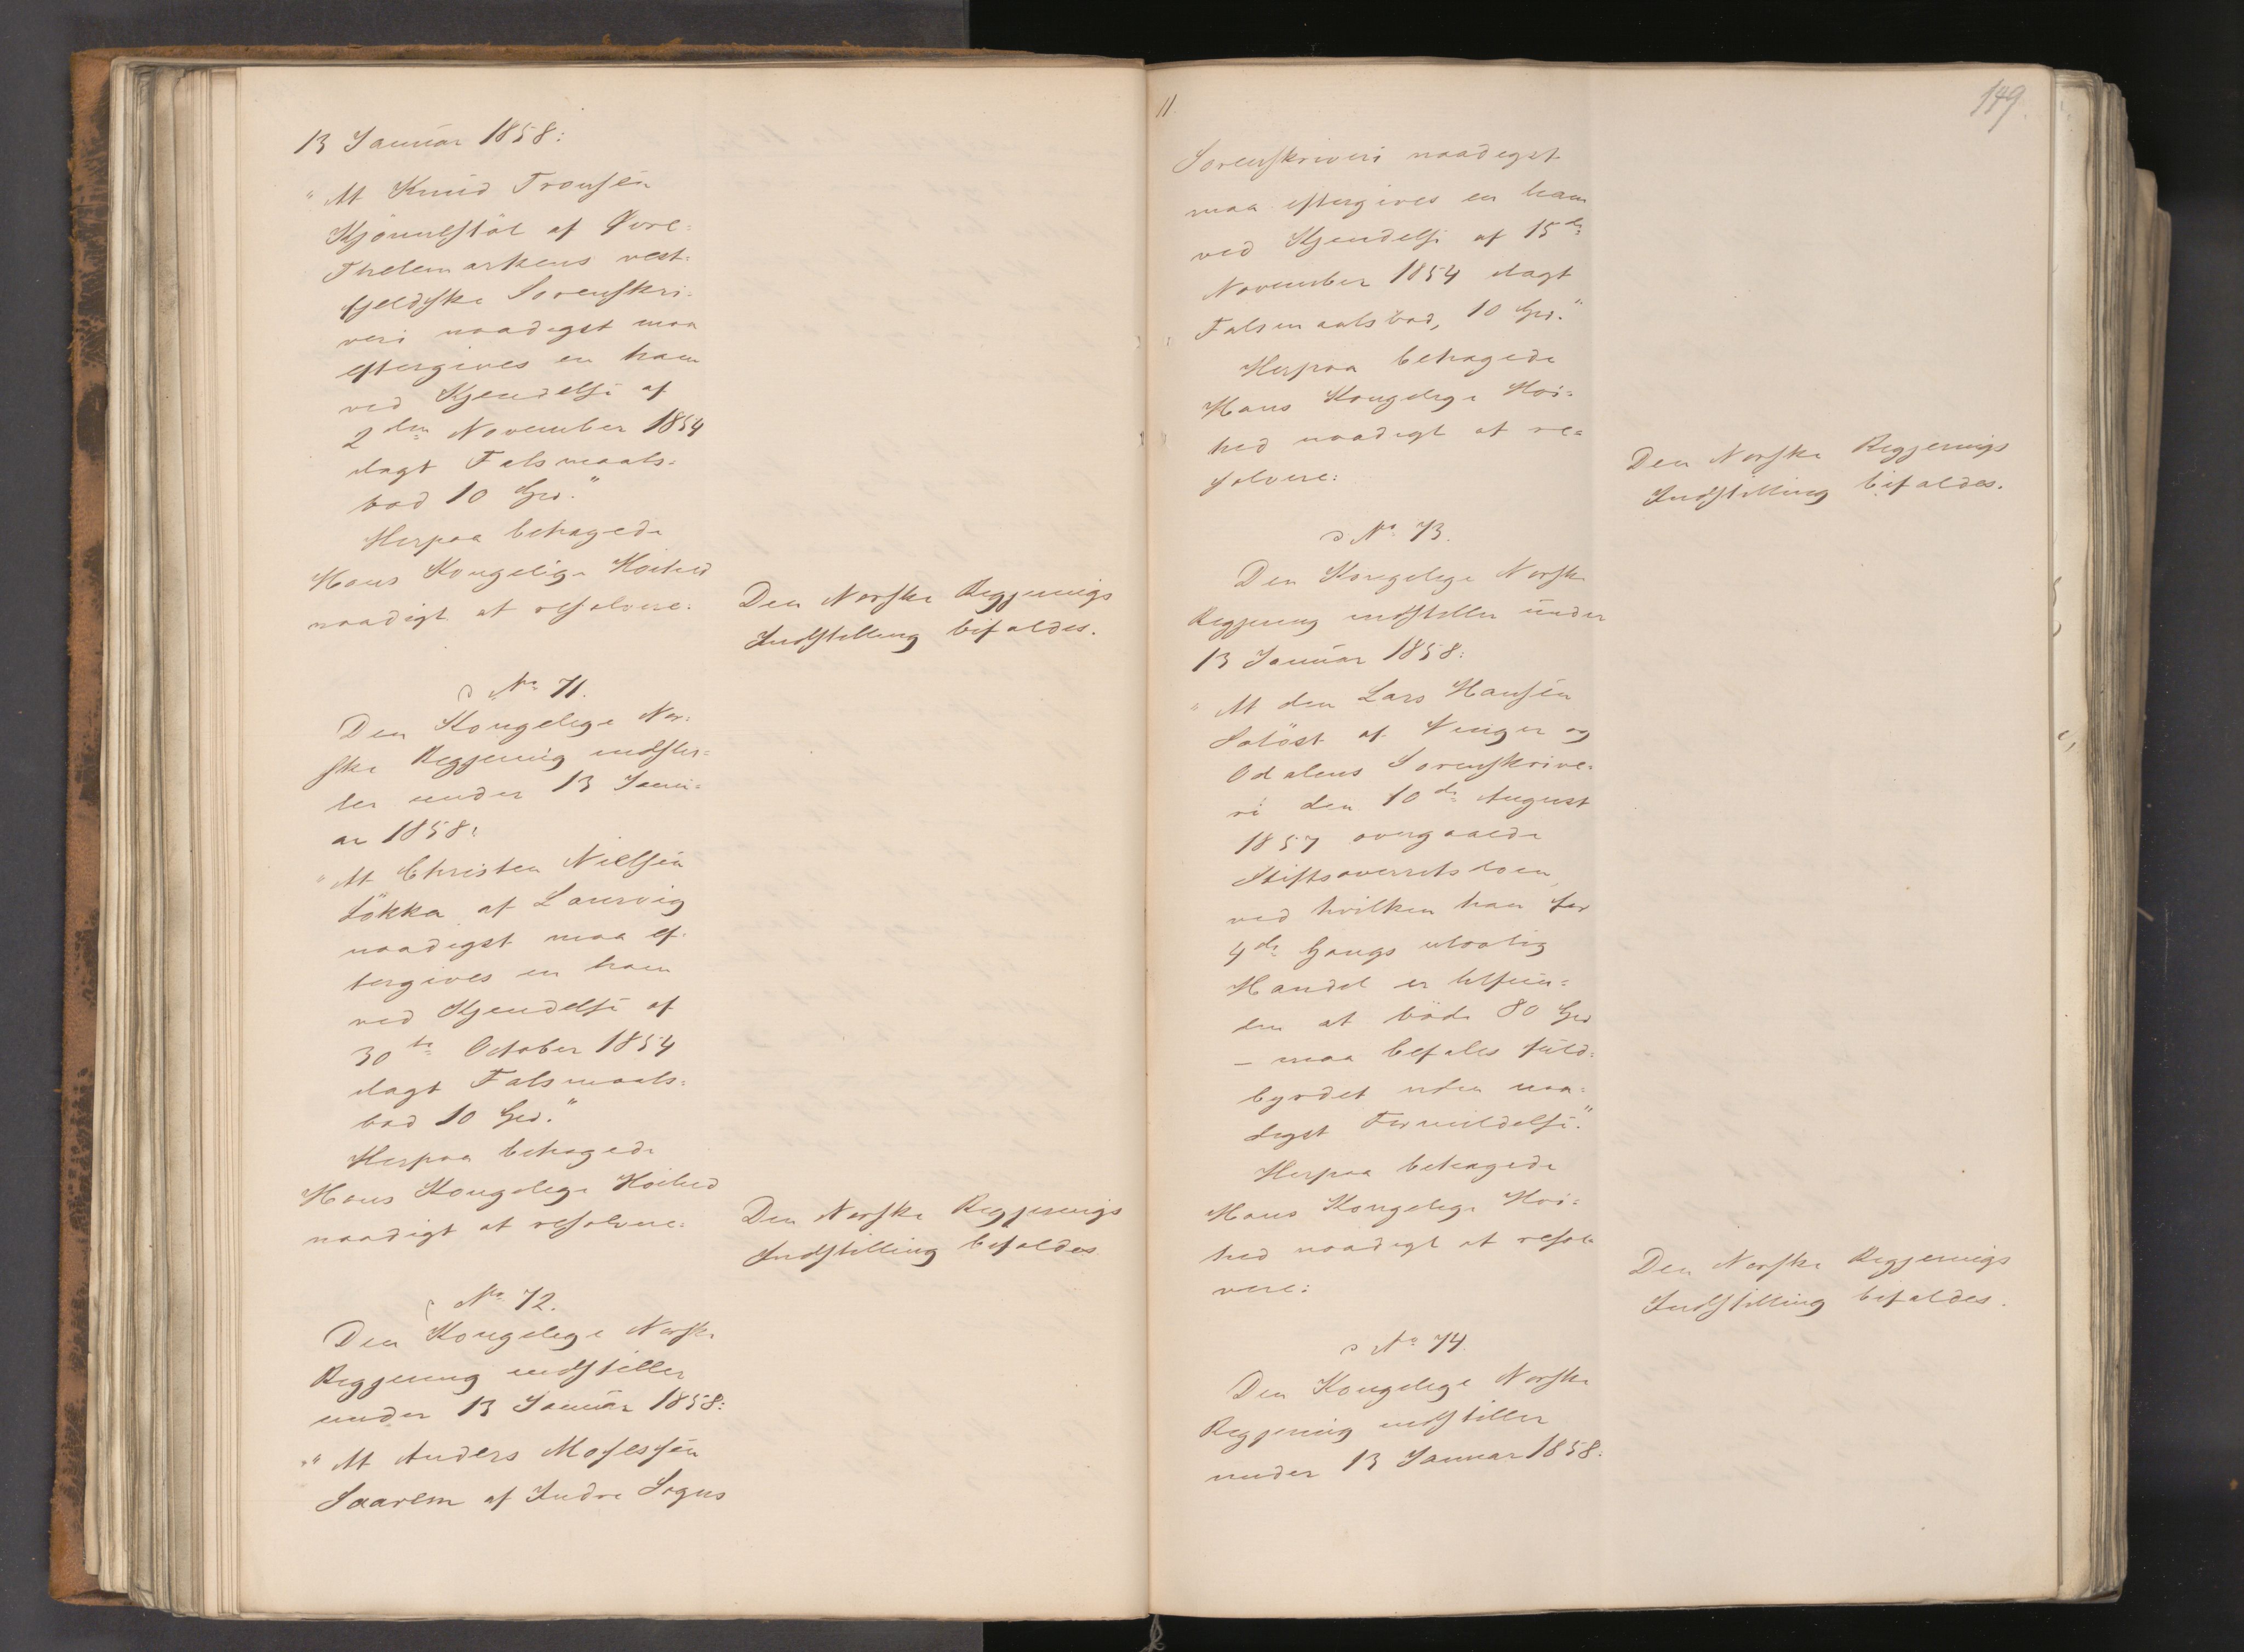 13 Januar 1858:
"At Knud Tronsen
Kjönnelstöl af Övre-
Thelemarkens vest-
fjeldske Sorenskri-
veri naadigst maa
eftergives en ham
ved Kjendelse af
2den November 1854
ilagt Falsmaals-
bod 10 Spd."
Herpaa behagede
Hans Kongelige Høihed
naadigt at resolvere:
Den Norske Regjerings
Indstilling bifaldes.
No 71.
Den Kongelige Nor-
ske Regjering indstil-
ler under 13 Janu-
ar 1858:
"At Christen Nielsen
Lökka af Laurvig
naadigst maa ef-
tergives en ham
ved Kjendelse af
30te October 1854
ilagt Falsmaals-
bod 10 Spd."
Herpaa behagede
Hans Kongelige Høihed
naadigt at resolvere:
Den Norske Regjerings
Indstilling bifaldes
No 72.
Den Kongelige Norske
Regjering indstiller
under 13 Januar 1858:
"At Anders Mosessen
Saarem af Indre Sogns
11
149.
Sorenskriveri naadigst
maa eftergives en ham
ved Kjendelse af 15de
November 1854 ilagt
Falsmaalsbod, 10 Spd."
Herpaa behagede
Hans Kongelige Høi-
hed naadigt at re-
solvere:
Den Norske Regjerings
Indstilling bifaldes.
No 73.
Den Kongelige Norske
Regjering indstiller under
13 Januar 1858:
"At den Lars Hansen
Solöst af Vinger og
Odalens Sorenskrive-
ri den 10de August
1857 overgaaede
Stiftsoverretsdom,
ved hvilken han for
4de Gangs ulovlig
Handel er tilfun-
den at böde 80 Spd
- maa befales fuld-
byrdet uden naa-
digst Formildelse."
Herpaa behagede
Hans Kongelige Høi-
hed naadigt at resol
vere:
Den Norske Regjerings
Indstilling bifaldes.
No 74.
Den Kongelige Norske
Regjering indstiller
under 13 Januar 1858: